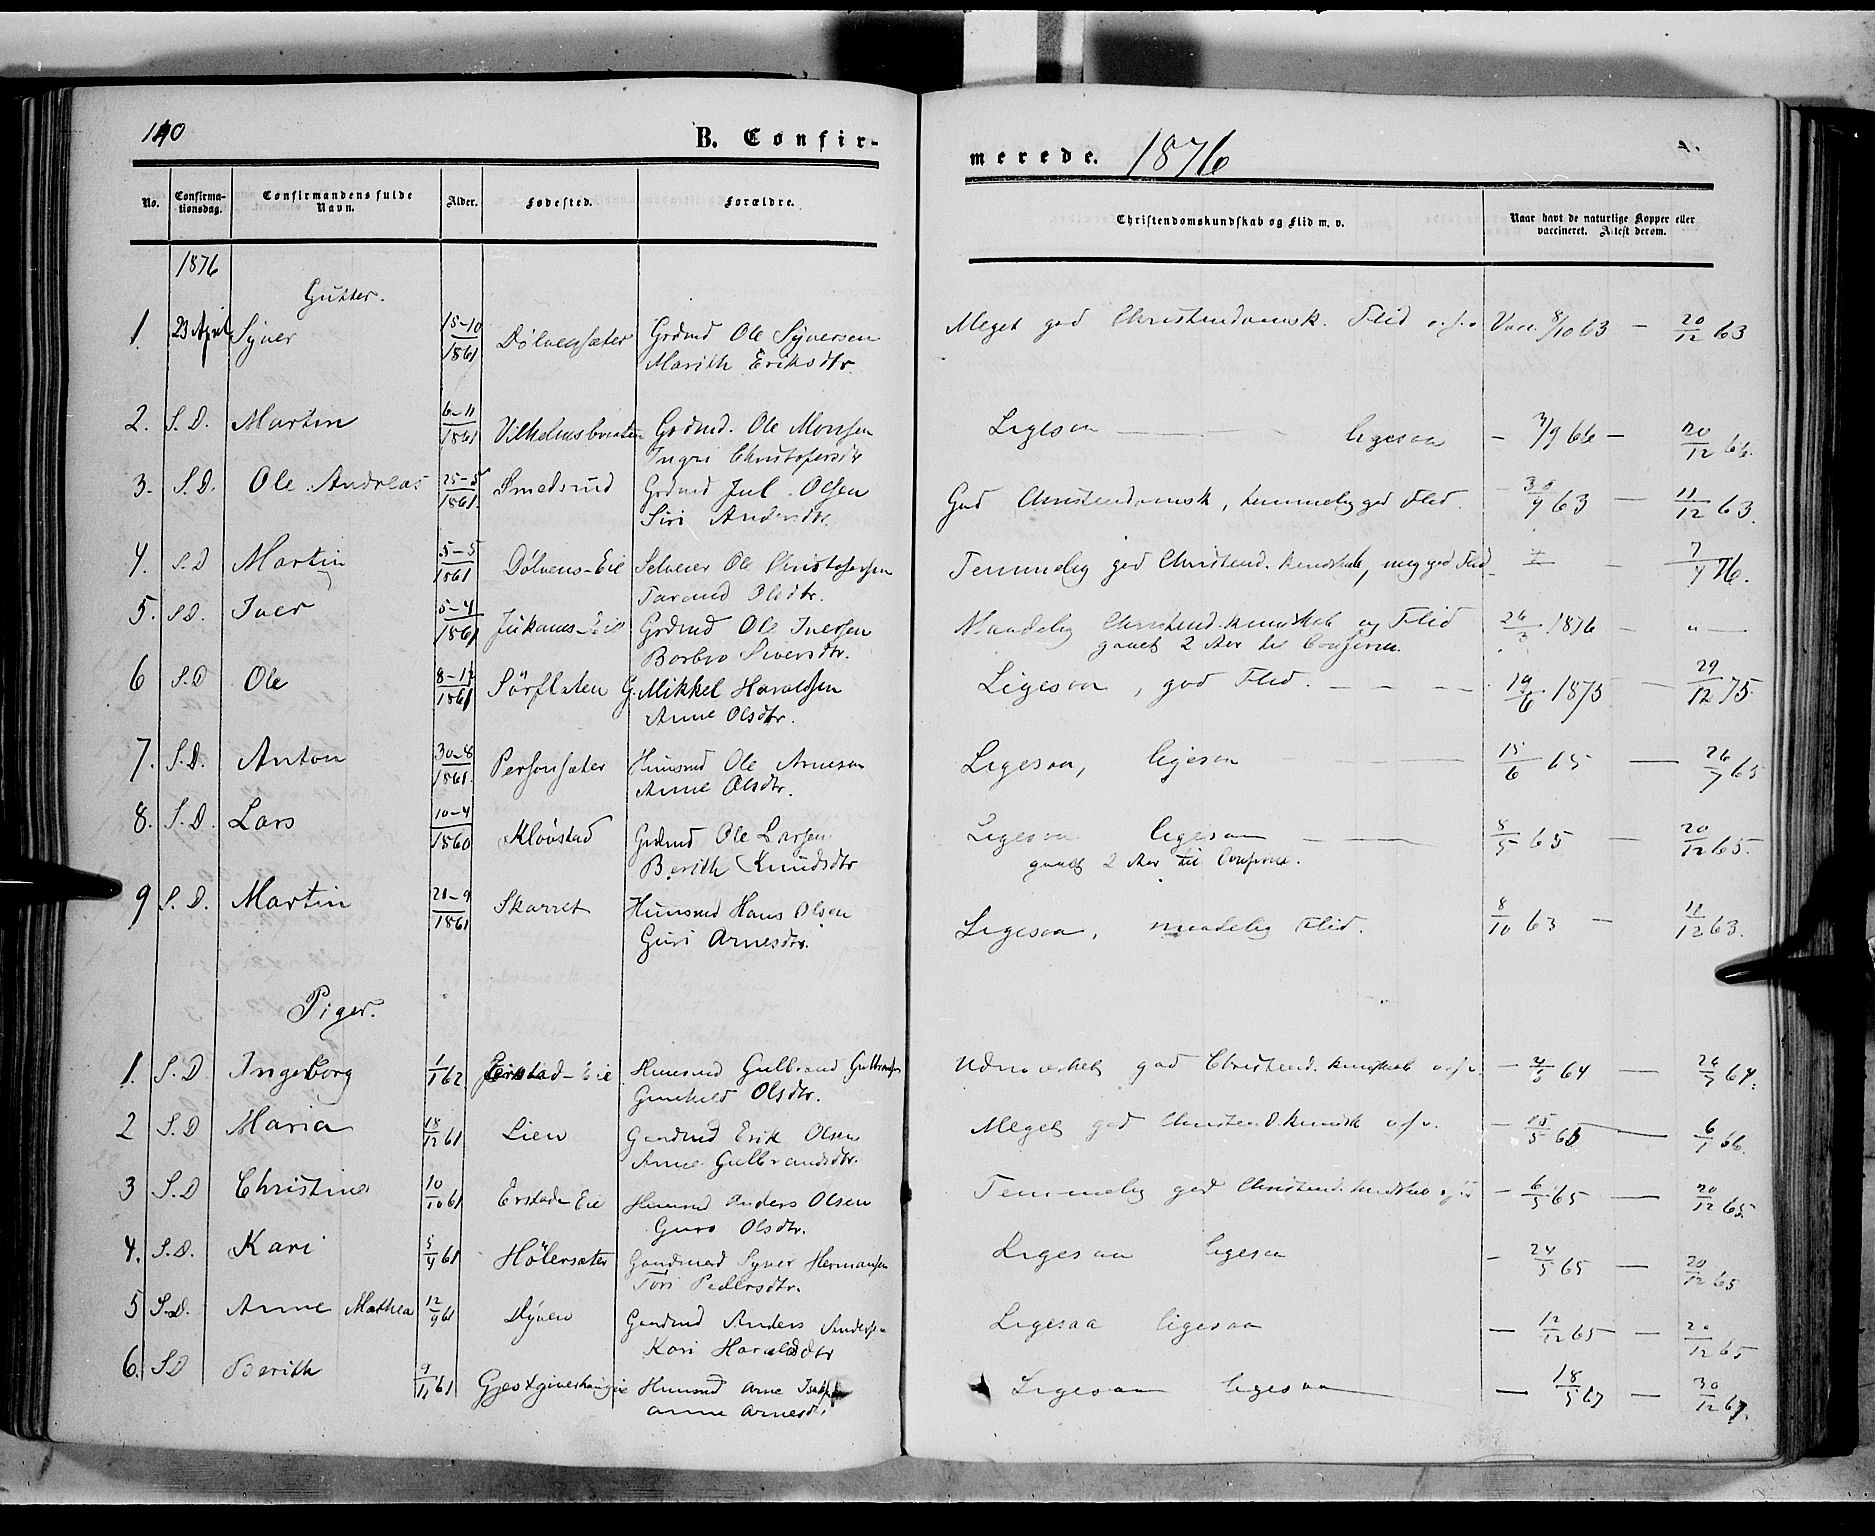 140
B. Confir-
merede. 1876
No. Confirma-tionsdag. Confirmandens fulde Navn. Alder. Fødested. Forældre.
Christendomskundskab og Flid m. v. Naar havt de naturlige Kopper eller vaccineret. Attest derom.
1876
Gutter.
1. 23 April Syver 15-10 1861 Dølvensæter Grdmd Ole Syversen
Marith Eriksdtr.
Meget god Christendomsk. Flid o.s.v. Vacc. 8/10 63 — 20/12 63
2. S. D. Martin 6-11 1861 Vilhelmsbraaten Grdmd. Ole Monsen
Ingri Christofersdtr
Ligesaa — ligesaa — 3/9 66 — 20/12 66.
3. S. D. Ole Andreas 25-5 1861. Smedsrud Grdmd Jul Olsen
Siri Andersdtr.
God Christendomsk, temmelig god Flid. 30/9 63 — 11/12 63.
4. S. D Martin 5-5 1861 Dølvens-Eie Selveier Ole Christofersen
Olsdtr.
Temmelig god Christend. kundskab, meg god Flid — 7/4 76.
5. S D. Iver 5-4 1861 Grdmd Ole Iversen
Barbro Siversdtr.
Maadelig Christend. kundskab og Flid 26/3 1876 — " —
gaaet 2 Aar til Confirm.
6 S. D Ole 8-12 1861 Sörflaten G. Mikkel Haraldsen
Anne Olsdtr.
Ligesaa, god Flid. — 19/6 1875 — 29/12 75.
7. S. D. Anton 30-8 1861. Personsæter Huusmd Ole Arnesen
Anne Olsdtr.
Ligesaa, ligesaa 15/6 65 — 26/7 65
8. S. D. Lars 10-4 1860 Klövstad Grdmd Ole Larsen
Berith Knudsdtr
Ligesaa ligesaa — 8/5 65 — 20/12 65.
gaaet 2 Aar til Confirm.
9 S. D. Martin 20-9 1861 Skarret Huusmd Hans Olsen
Guri Arnesdtr.
Ligesaa, maadelig Flid. 8/10 63 — 11/12 63.
Piger.
1. S. D Ingeborg 1/1 62. Erstad-Eie Huusmd Gulbrand Gulbrandsen
Gunhild Olsdtr.
Udmærket god Christend. kundskab o.s.v. — 4/5 64 — 26/7 64.
2 S. D Maria 18/12 61 Lien Gaardmd Erik Olsen
Anne Gulbrandsdtr.
Meget god Christend. kundsk o.s.v. — 15/5 65 — 6/1 66.
3 S. D Christine 10/10 61 Erstad-Eie Huusmd Anders Olsen
Guro Olsdtr.
Temmelig god Christend. kundskab — 6/5 65 — 20/12 65.
4. S. D. Kari 5/4 61 Hölersæter Gaardmand Syver Hermansen
Tori Pedersdtr.
Ligesaa ligesaa — 24/5 65 — 20/12 65
5 S. D. Anne Mathea 12/9 61 Dyven Gaardmd Anders Andersen
Kari Haraldsdtr
Ligesaa ligesaa — 12/12 65 — 20/12 65
6. S D Berith 9/11 61 Huusmd Arne
Anne Arnesdtr.
Ligesaa ligesaa — 18/5 67 — 30/12 67.